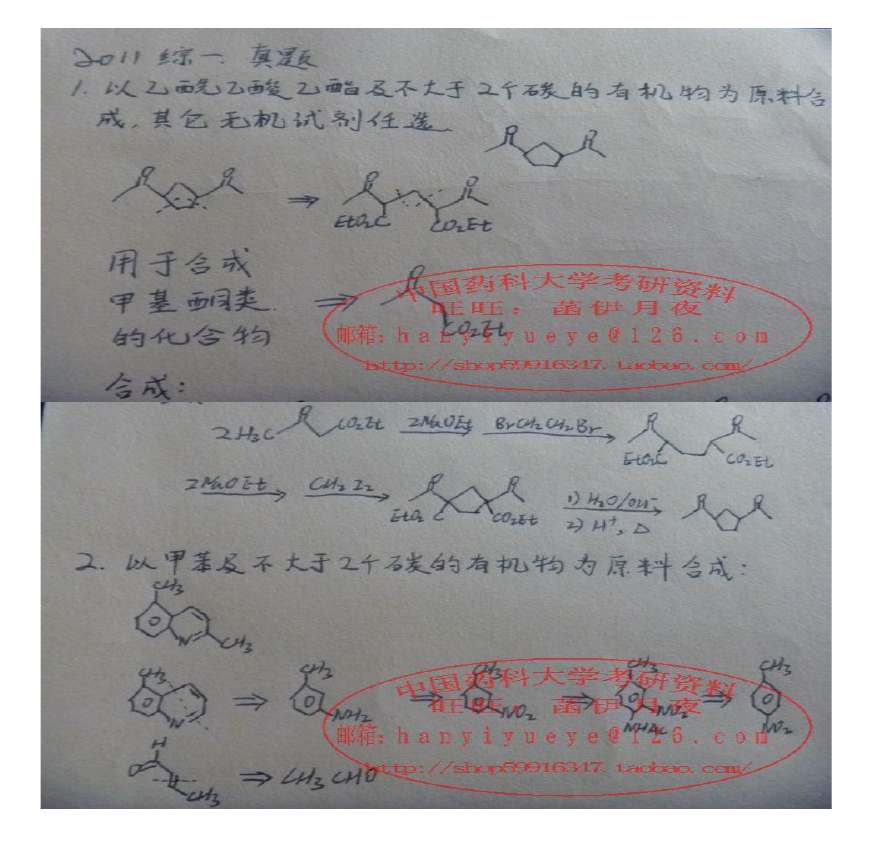 2011 综一 真题
1. 以乙酰乙酸乙酯及不大于2个碳的有机物为原料合
成,其它无机试剂任选
⇒
EtO₂C CO₂Et
用于合成
甲基酮类
的化合物
⇒ CO₂Et
中国药科大学考研资料
旺旺:菡伊月夜
邮箱:hanyiyueye@126.com
http://shop59916347.taobao.com/
合成:
2H₃C CO₂Et 2NaOEt BrCH₂CH₂Br EtO₂C CO₂Et
2NaOEt CH₂I₂ EtO₂C CO₂Et 1) H₂O/OH⁻ 2) H⁺, Δ
2. 以甲苯及不大于2个碳的有机物为原料合成:
CH₃
N CH₃
CH₃ N ⇒ CH₃ NH₂ ⇒ CH₃ NO₂ ⇒ CH₃ NO₂ NHAc ⇒ CH₃ NO₂
中国药科大学考研资料
旺旺:菡伊月夜
邮箱:hanyiyueye@126.com
http://shop59916347.taobao.com/
H
O CH₃ ⇒ CH₃CHO